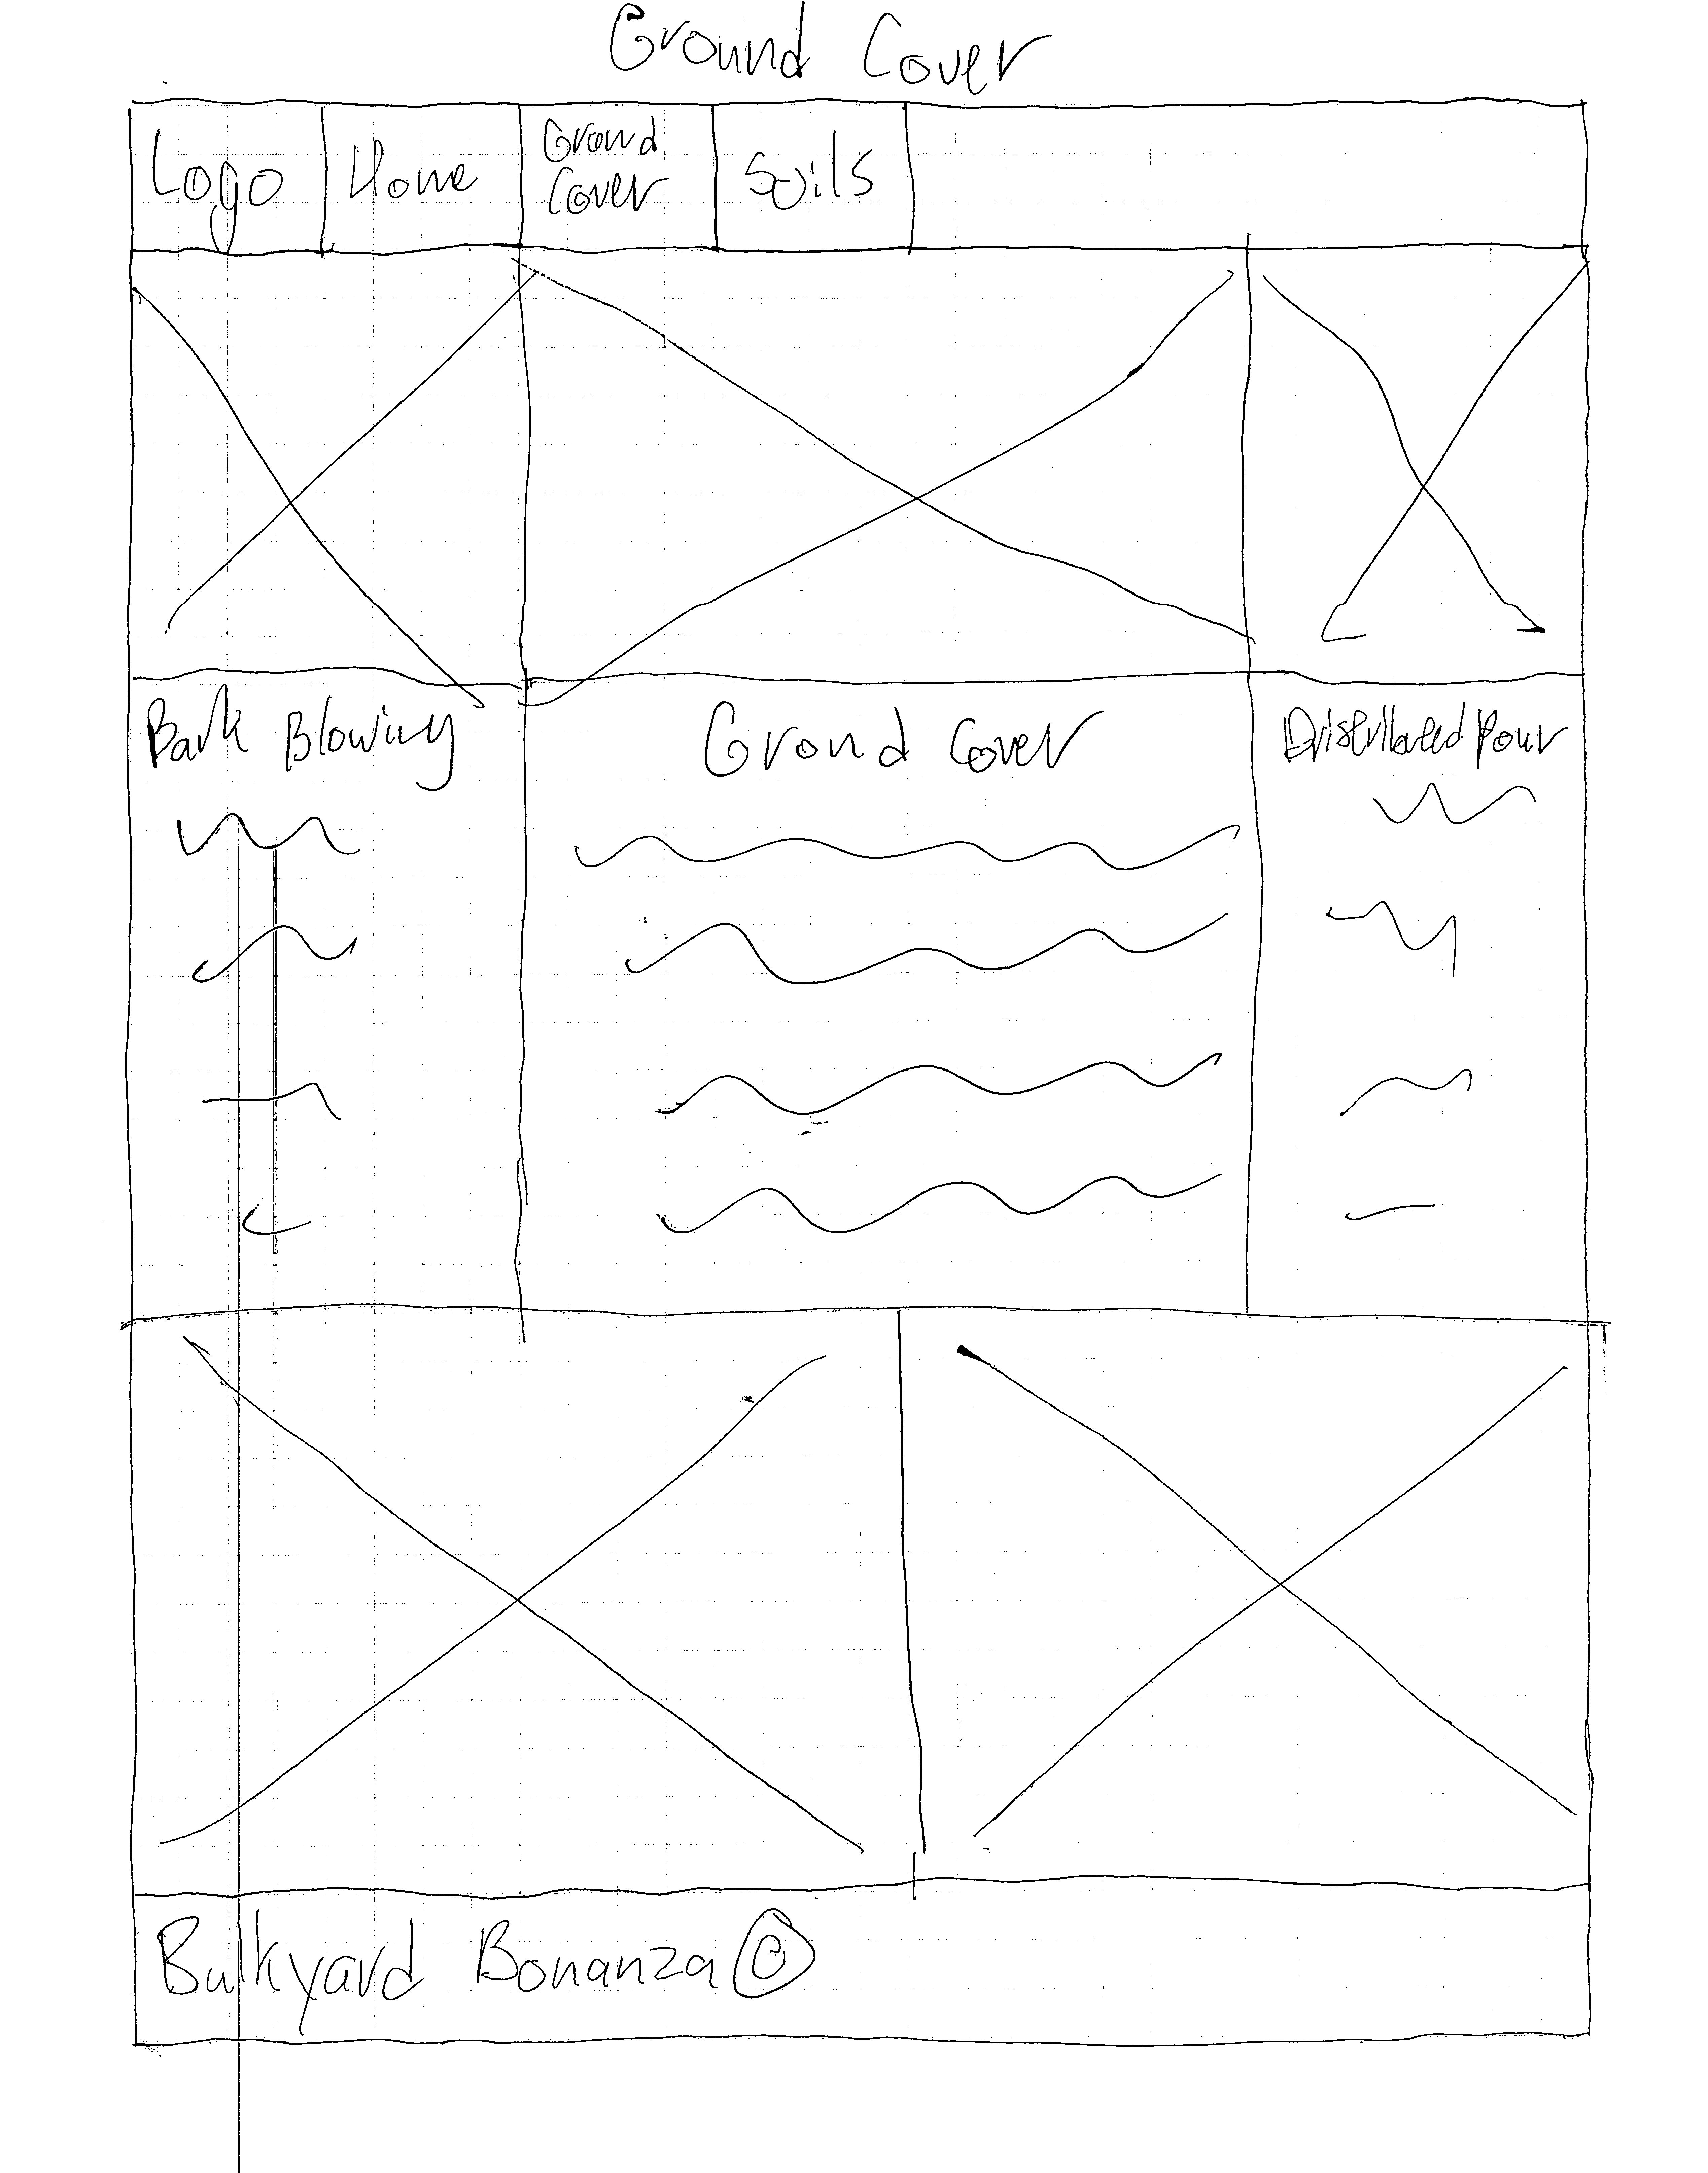 Ground Cover
Logo
Home
Ground
Cover
Soils
Bark Blowing
Grond Cover
Pour
Bulkyard Bonanza ©